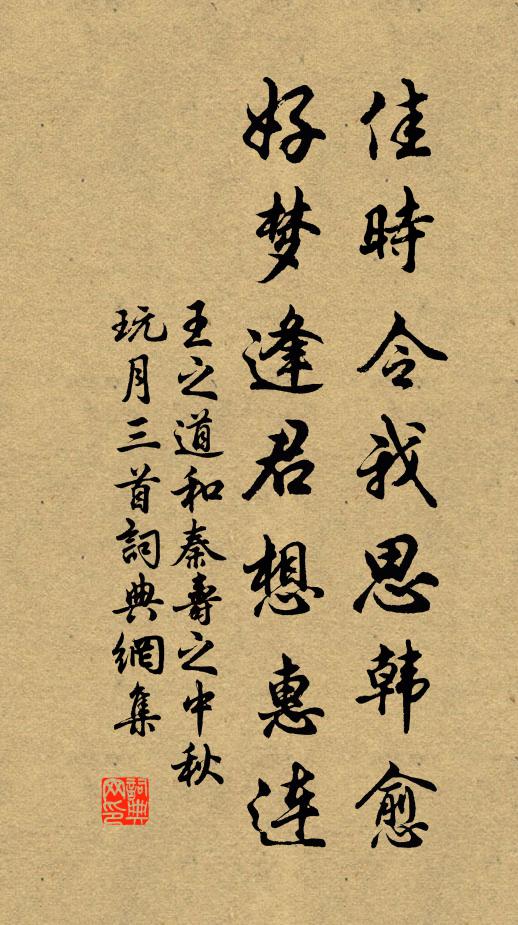 佳時令我思韩愈
好梦逢君想惠连
王之道和秦壽之中秋
玩月三首詞典網集
詞典
网印